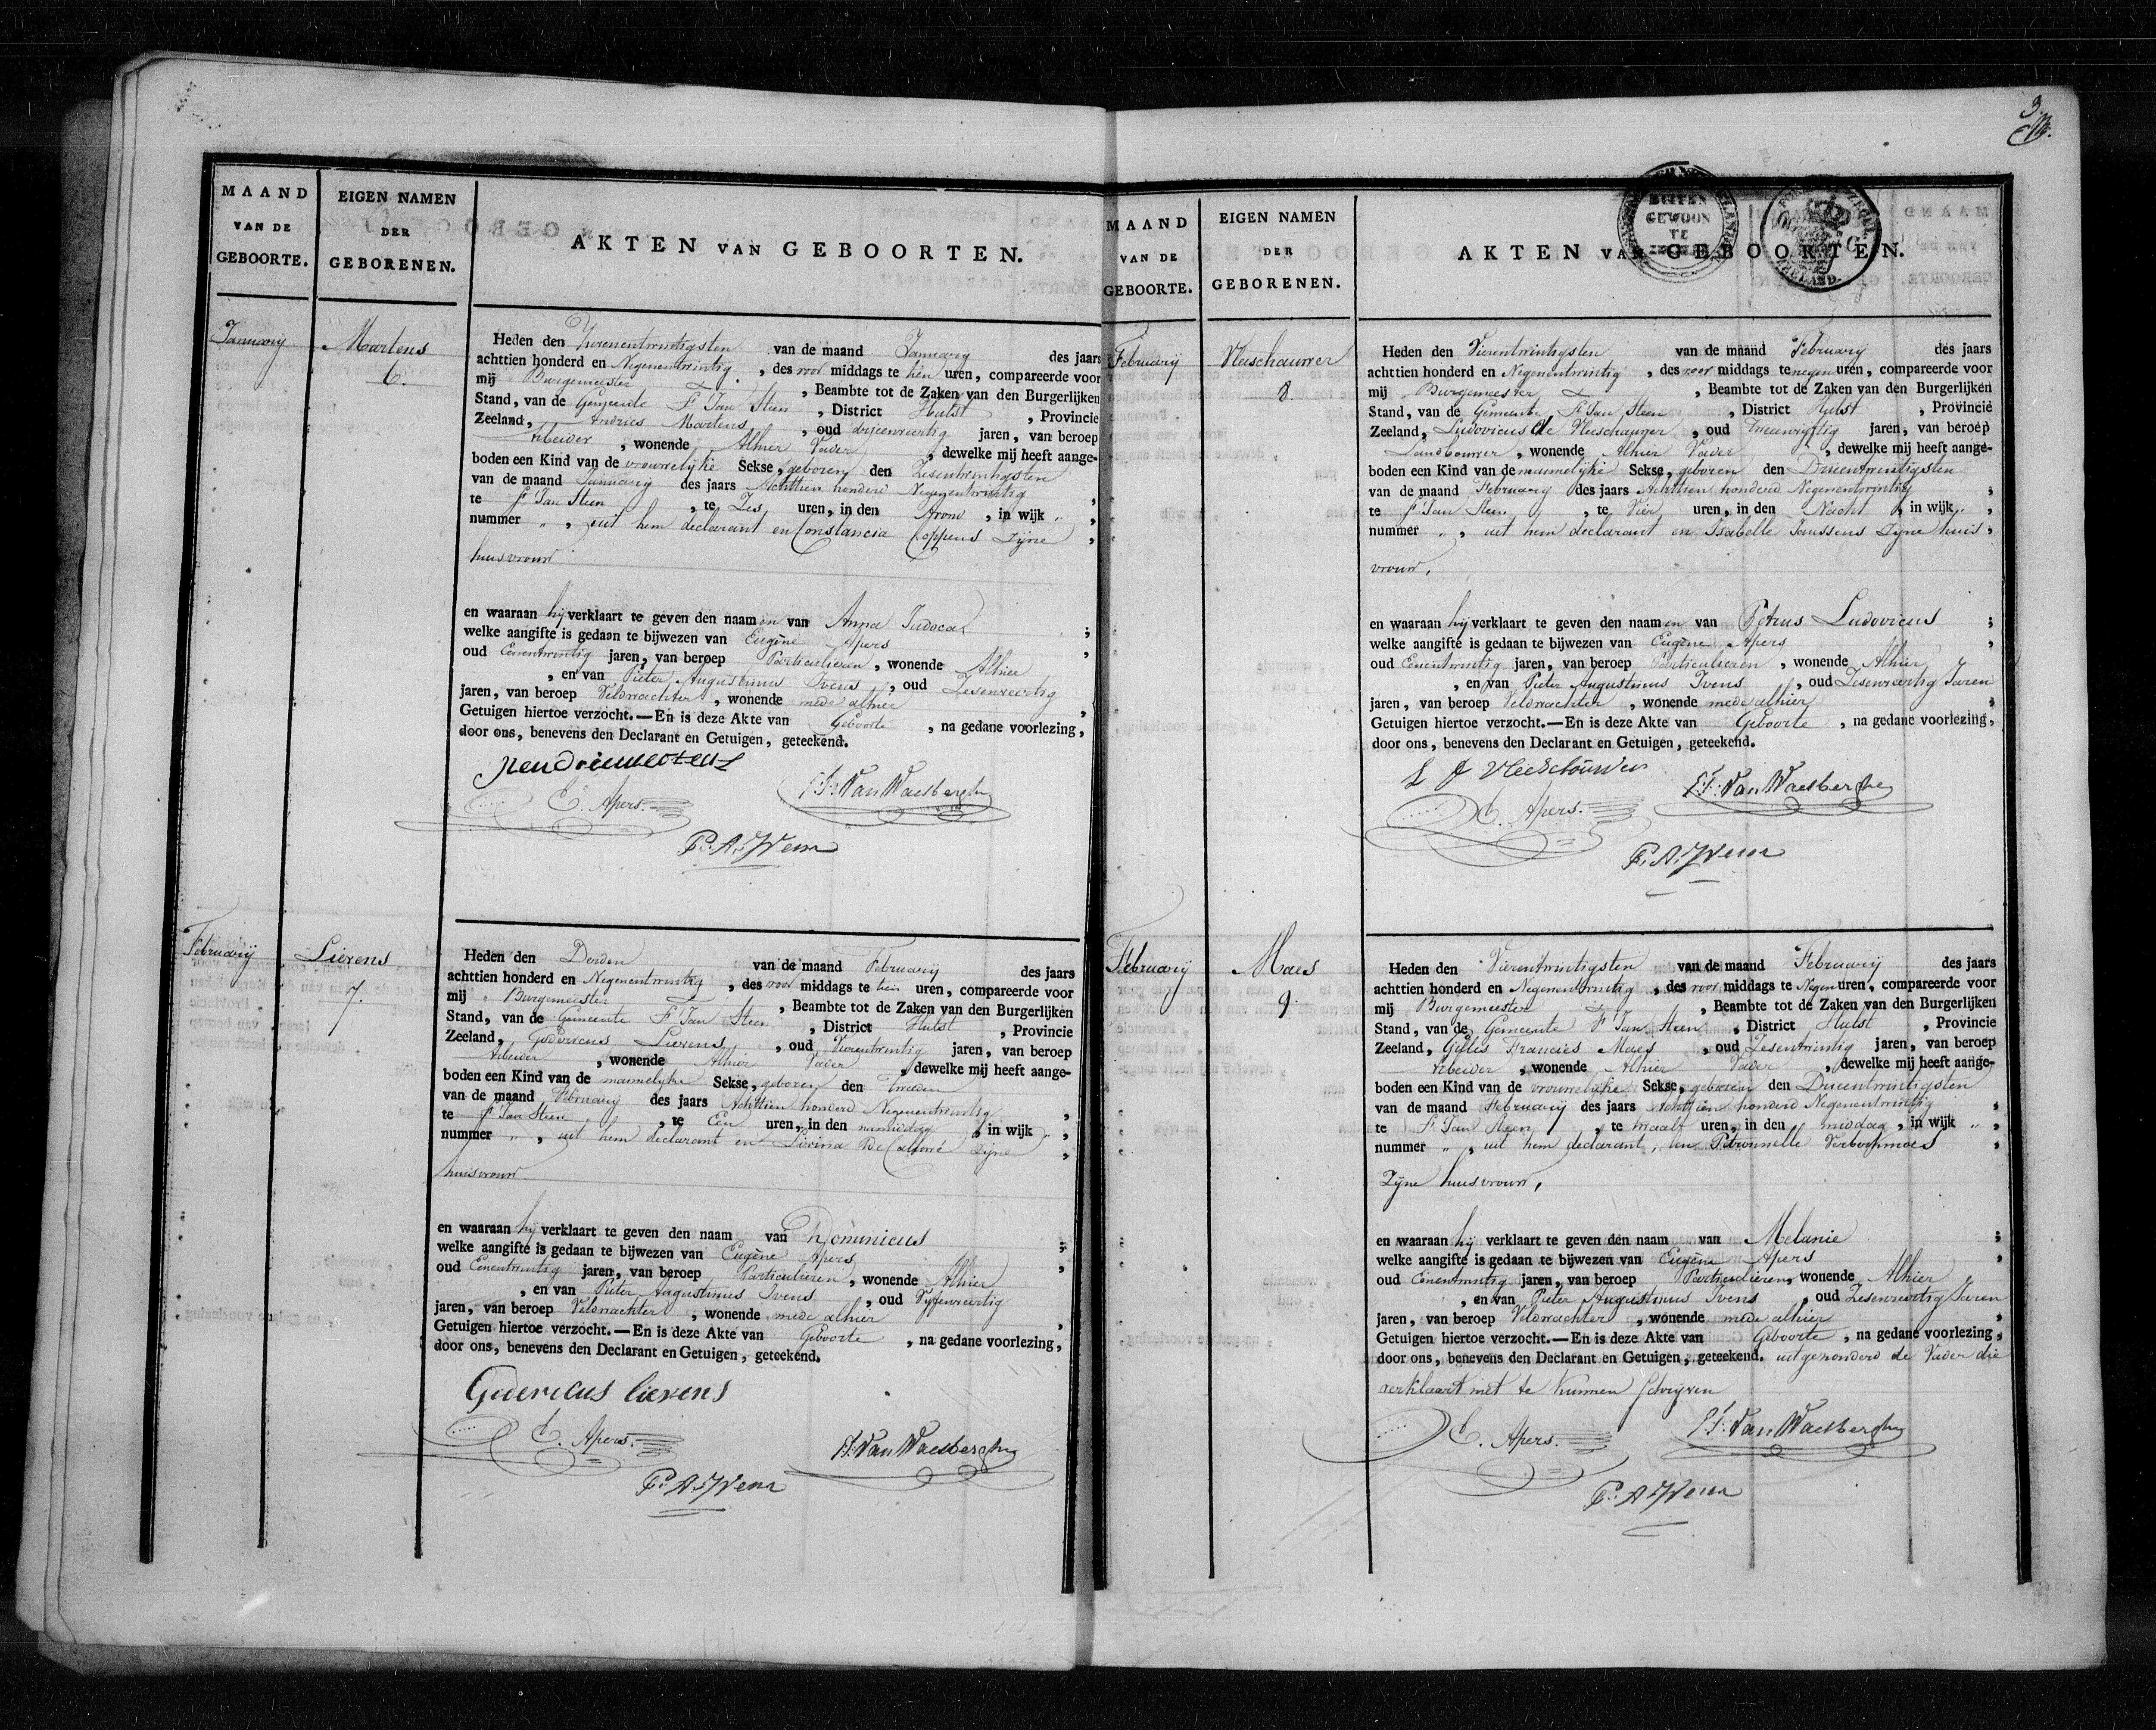 3
MAAND VAN DE GEBOORTE.
EIGEN NAMEN DER GEBORENEN.
AKTEN VAN GEBOORTEN.
Januarij
Martens
6.
Heden den van de maand Januarij des jaars
achttien honderd en Negenentwintig, des voor middags te tien uren, compareerde voor
mij Burgemeester, Beambte tot de Zaken van den Burgerlijken
Stand, van de Gemeente St Jan Steen, District Hulst, Provincie
Zeeland, Andries Martens, oud drijenveertig jaren, van beroep
Arbeider, wonende Alhier Vader, dewelke mij heeft aange-
boden een Kind van de vrouwelijke Sekse, geboren den Zesentwintigsten
van de maand Januarij des jaars Achttien honderd Negenentwintig,
te St Jan Steen, te Zes uren, in den Avond, in wijk „,
nummer „, uit hem declarant en Constancia Coppens Zijne,
huisvrouw
en waaraan hij verklaart te geven den naamen van Anna Judoca;
welke aangifte is gedaan te bijwezen van Eugène Apers,
oud Eenentwintig jaren, van beroep Particulieren, wonende Alhier
, en van Pieter Augustinus Ivens, oud Zesenveertig
jaren, van beroep Veldwachter, wonende mede alhier,
Getuigen hiertoe verzocht.—En is deze Akte van Geboorte, na gedane voorlezing,
door ons, benevens den Declarant en Getuigen, geteekend.
E. Apers.
Van Waesberghe
P. A. Ivens
Februarij
Lievens
7.
Heden den Derden van de maand Februarij des jaars
achttien honderd en Negenentwintig, des voor middags te tien uren, compareerde voor
mij Burgemeester, Beambte tot de Zaken van den Burgerlijken
Stand, van de Gemeente St Jan Steen, District Hulst, Provincie
Zeeland, Godericus Lievens, oud Vierentwintig jaren, van beroep
Arbeider, wonende Alhier Vader, dewelke mij heeft aange-
boden een Kind van de mannelijke Sekse, geboren den Tweeden
van de maand Februarij des jaars Achttien honderd Negenentwintig,
te St Jan Steen, te Een uren, in den namiddag, in wijk „,
nummer „, uit hem declarant en Livina De Zijne,
huisvrouw
en waaraan hij verklaart te geven den naam van Dominicus;
welke aangifte is gedaan te bijwezen van Eugène Apers,
oud Eenentwintig jaren, van beroep Particulieren, wonende Alhier
, en van Pieter Augustinus Ivens, oud Vijfenveertig
jaren, van beroep Veldwachter, wonende mede alhier,
Getuigen hiertoe verzocht.—En is deze Akte van Geboorte, na gedane voorlezing,
door ons, benevens den Declarant en Getuigen, geteekend.
Godericus lievens
E. Apers.
Van Waesberghe
P. A. Ivens
MAAND VAN DE GEBOORTE.
EIGEN NAMEN DER GEBORENEN.
AKTEN VAN GEBOORTEN.
BUITEN
GEWOON
TE
ZEELAND.
Februarij
Vleeschauwer
8.
Heden den Vierentwintigsten van de maand Februarij des jaars
achttien honderd en Negenentwintig, des voor middags te negen uren, compareerde voor
mij Burgemeester, Beambte tot de Zaken van den Burgerlijken
Stand, van de Gemeente St Jan Steen, District Hulst, Provincie
Zeeland, Ludovicus de Vleeschauwer, oud Tweenvijftig jaren, van beroep
Landbouwer, wonende Alhier Vader, dewelke mij heeft aange-
boden een Kind van de mannelijke Sekse, geboren den Drieentwintigsten
van de maand Februarij des jaars Achttien honderd Negenentwintig,
te St Jan Steen, te Vier uren, in den Nacht, in wijk „,
nummer „, uit hem declarant en Isabelle Janssens Zijne huis,
vrouw,
en waaraan hij verklaart te geven den naamen van Petrus Ludovicus;
welke aangifte is gedaan te bijwezen van Eugène Apers,
oud Eenentwintig jaren, van beroep Particulieren, wonende Alhier
, en van Pieter Augustinus Ivens, oud Zesenveertig Jaren
jaren, van beroep Veldwachter, wonende mede alhier,
Getuigen hiertoe verzocht.—En is deze Akte van Geboorte, na gedane voorlezing,
door ons, benevens den Declarant en Getuigen, geteekend.
E. Apers.
Van Waesberghe
P. A. Ivens
Februarij
Maes
9.
Heden den Vierentwintigsten van de maand Februarij des jaars
achttien honderd en Negenentwintig, des voor middags te Negen uren, compareerde voor
mij Burgemeester, Beambte tot de Zaken van den Burgerlijken
Stand, van de Gemeente St Jan Steen, District Hulst, Provincie
Zeeland, Gillis Francies Maes, oud Zesentwintig jaren, van beroep
Arbeider, wonende Alhier Vader, dewelke mij heeft aange-
boden een Kind van de vrouwelijke Sekse, geboren den Drieentwintigsten
van de maand Februarij des jaars Achttien honderd Negenentwintig,
te St Jan Steen, te twaalf uren, in den middag, in wijk „,
nummer „, uit hem declarant, en Petronnelle Verbookmoes,
Zijne huisvrouw,
en waaraan hij verklaart te geven den naam van Melanie;
welke aangifte is gedaan te bijwezen van Eugène Apers,
oud Eenentwintig jaren, van beroep Particulieren, wonende Alhier
, en van Pieter Augustinus Ivens, oud Zesenveertig Jaren
jaren, van beroep Veldwachter, wonende mede alhier,
Getuigen hiertoe verzocht.—En is deze Akte van Geboorte, na gedane voorlezing,
door ons, benevens den Declarant en Getuigen, geteekend. uitgezonderd de Vader die
verklaart niet te kunnen schrijven
E. Apers.
Van Waesberghe
P. A. Ivens